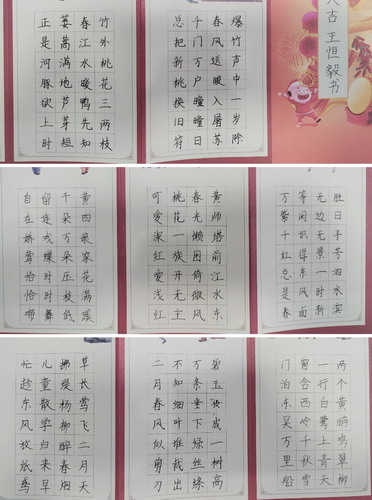 竹外桃花三两枝
春江水暖鸭先知
蒌蒿满地芦芽短
正是河豚欲上时
爆竹声中一岁除
春风送暖入屠苏
千门万户曈曈日
总把新桃换旧符
吉 王恒毅书
黄四娘家花满蹊
千朵万朵压枝低
留连戏蝶时时舞
自在娇莺恰恰啼
黄师塔前江水东
春光懒困倚微风
桃花一簇开无主
可爱深红爱浅红
胜日寻芳泗水滨
无边光景一时新
等闲识得东风面
万紫千红总是春
草长莺飞二月天
拂堤杨柳醉春烟
儿童散学归来早
忙趁东风放纸鸢
碧玉妆成一树高
万条垂下绿丝绦
不知细叶谁裁出
二月春风似剪刀
两个黄鹂鸣翠柳
一行白鹭上青天
窗含西岭千秋雪
门泊东吴万里船